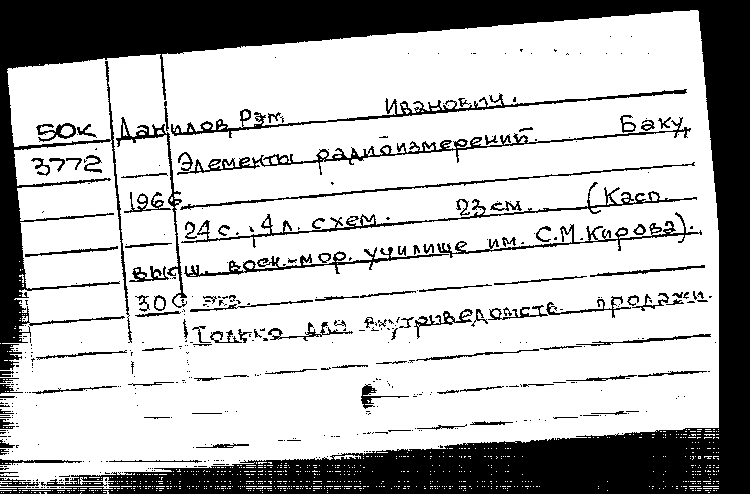 50К Данилов Рэм Иванович.
3772 Элементы радиоизмерений. Баку,
1966.
24 с., 4 л. схем. 23 см. (Касп.
высш. воен.-мор. училище им. С.М.Кирова).
300 экз.
Только для внутриведомств. продажи.